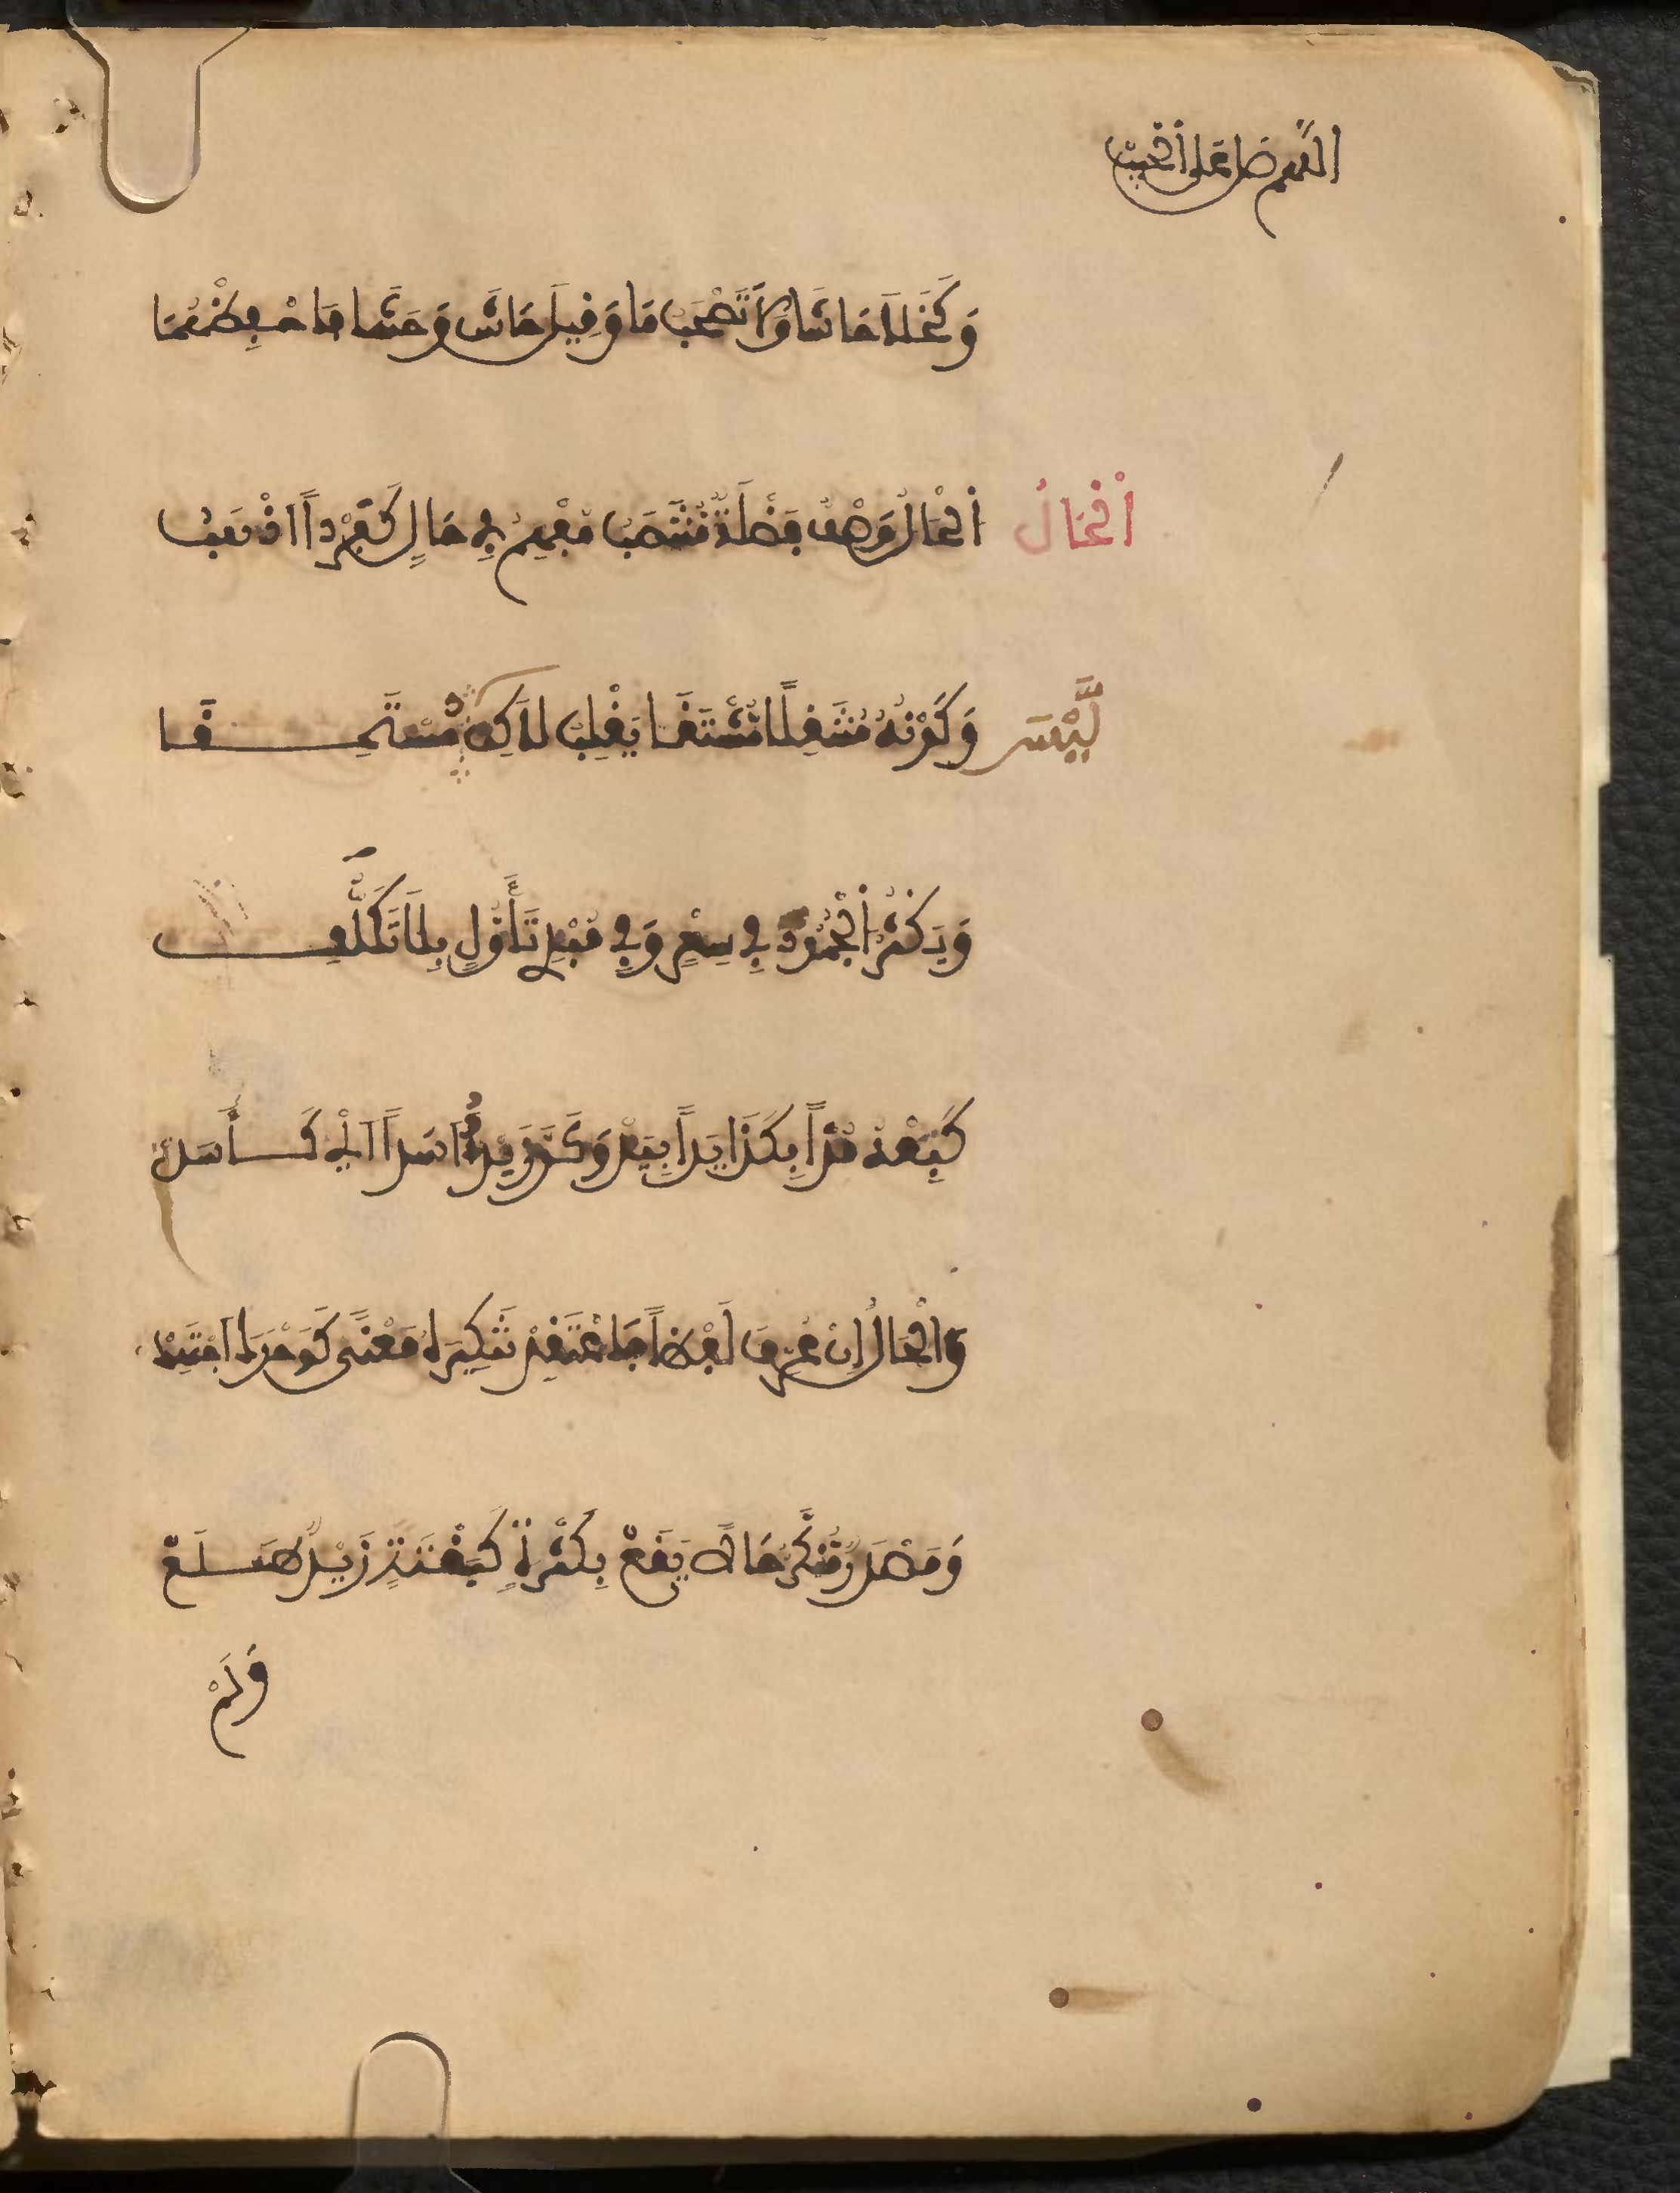 اللهم صل على الحبيب
وَكَخَلَا حَاشَا وَلَا تَصْحَبُ مَا وَقِيلَ حَاشَ وَحَشَا فَاحْفَظْهُمَا
اَلْحَالُ اَلْحَالُ وَصْفٌ فَضْلَةٌ مُنْتَصِبُ مُفْهِمُ فِي حَالٍ كَفَرْداً اَذْهَبُ
لَيْسَ وَكَوْنُهُ مُنْتَقِلًا مُشْتَقَّا يَغْلِبُ لَاكِنْ لَيْسَ مُسْتَحِقَّا
وَيَكْثُرُ اَلْجُمُودُ فِي سِعْرٍ وَفِي مُبْدِي تَأَوُّلٍ بِلَا تَكَلُّفِ
كَبِعْهُ مُدّاً بِكَذَا يَداً بِيَدْ وَكَرَّ زَيْدٌ اَسَداً اَيْ كَأَسَدْ
وَالْحَالُ إِنْ عُرِّفَ لَفْظاً فَاعْتَقِدْ تَنْكِيرَهُ مَعْنًى كَوَحْدَكَ اَجْتَهِدْ
وَمَصْدَرٌ مُنَكَّرٌ حَالاً يَقَعْ بِكَثْرَةٍ كَبَغْتَةٍ زَيْدٌ طَلَعْ
وَلَمْ